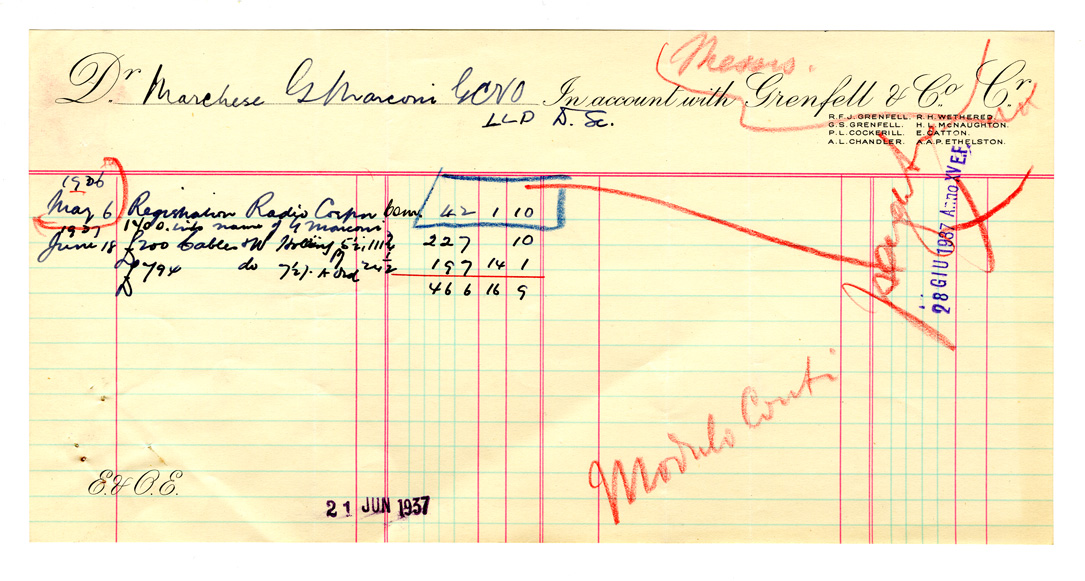 Messrs.
Dr Marchese G Marconi GCVO In account with Grenfell & Co. Cr
LLD D. Sc.
R.F.J. GRENFELL. R.H. WETHERED.
G.S. GRENFELL. H.L. McNAUGHTON.
P.L. COCKERILL. E. CATTON.
A.L. CHANDLER. A.A.P. ETHELSTON.
1936
May 6 Registration Radio Corpn Com. 42 1 10
1400 into name of G Marconi
1937
June 18 £200 Cables & W Holding 5½ 111½ 227 10
£794 do 7½% A Ord 24½ 197 14 1
£ 466 16 9
pagato
28 GIU 1937 Anno XV E.F.
Modulo Conti
E. & O.E.
21 JUN 1937